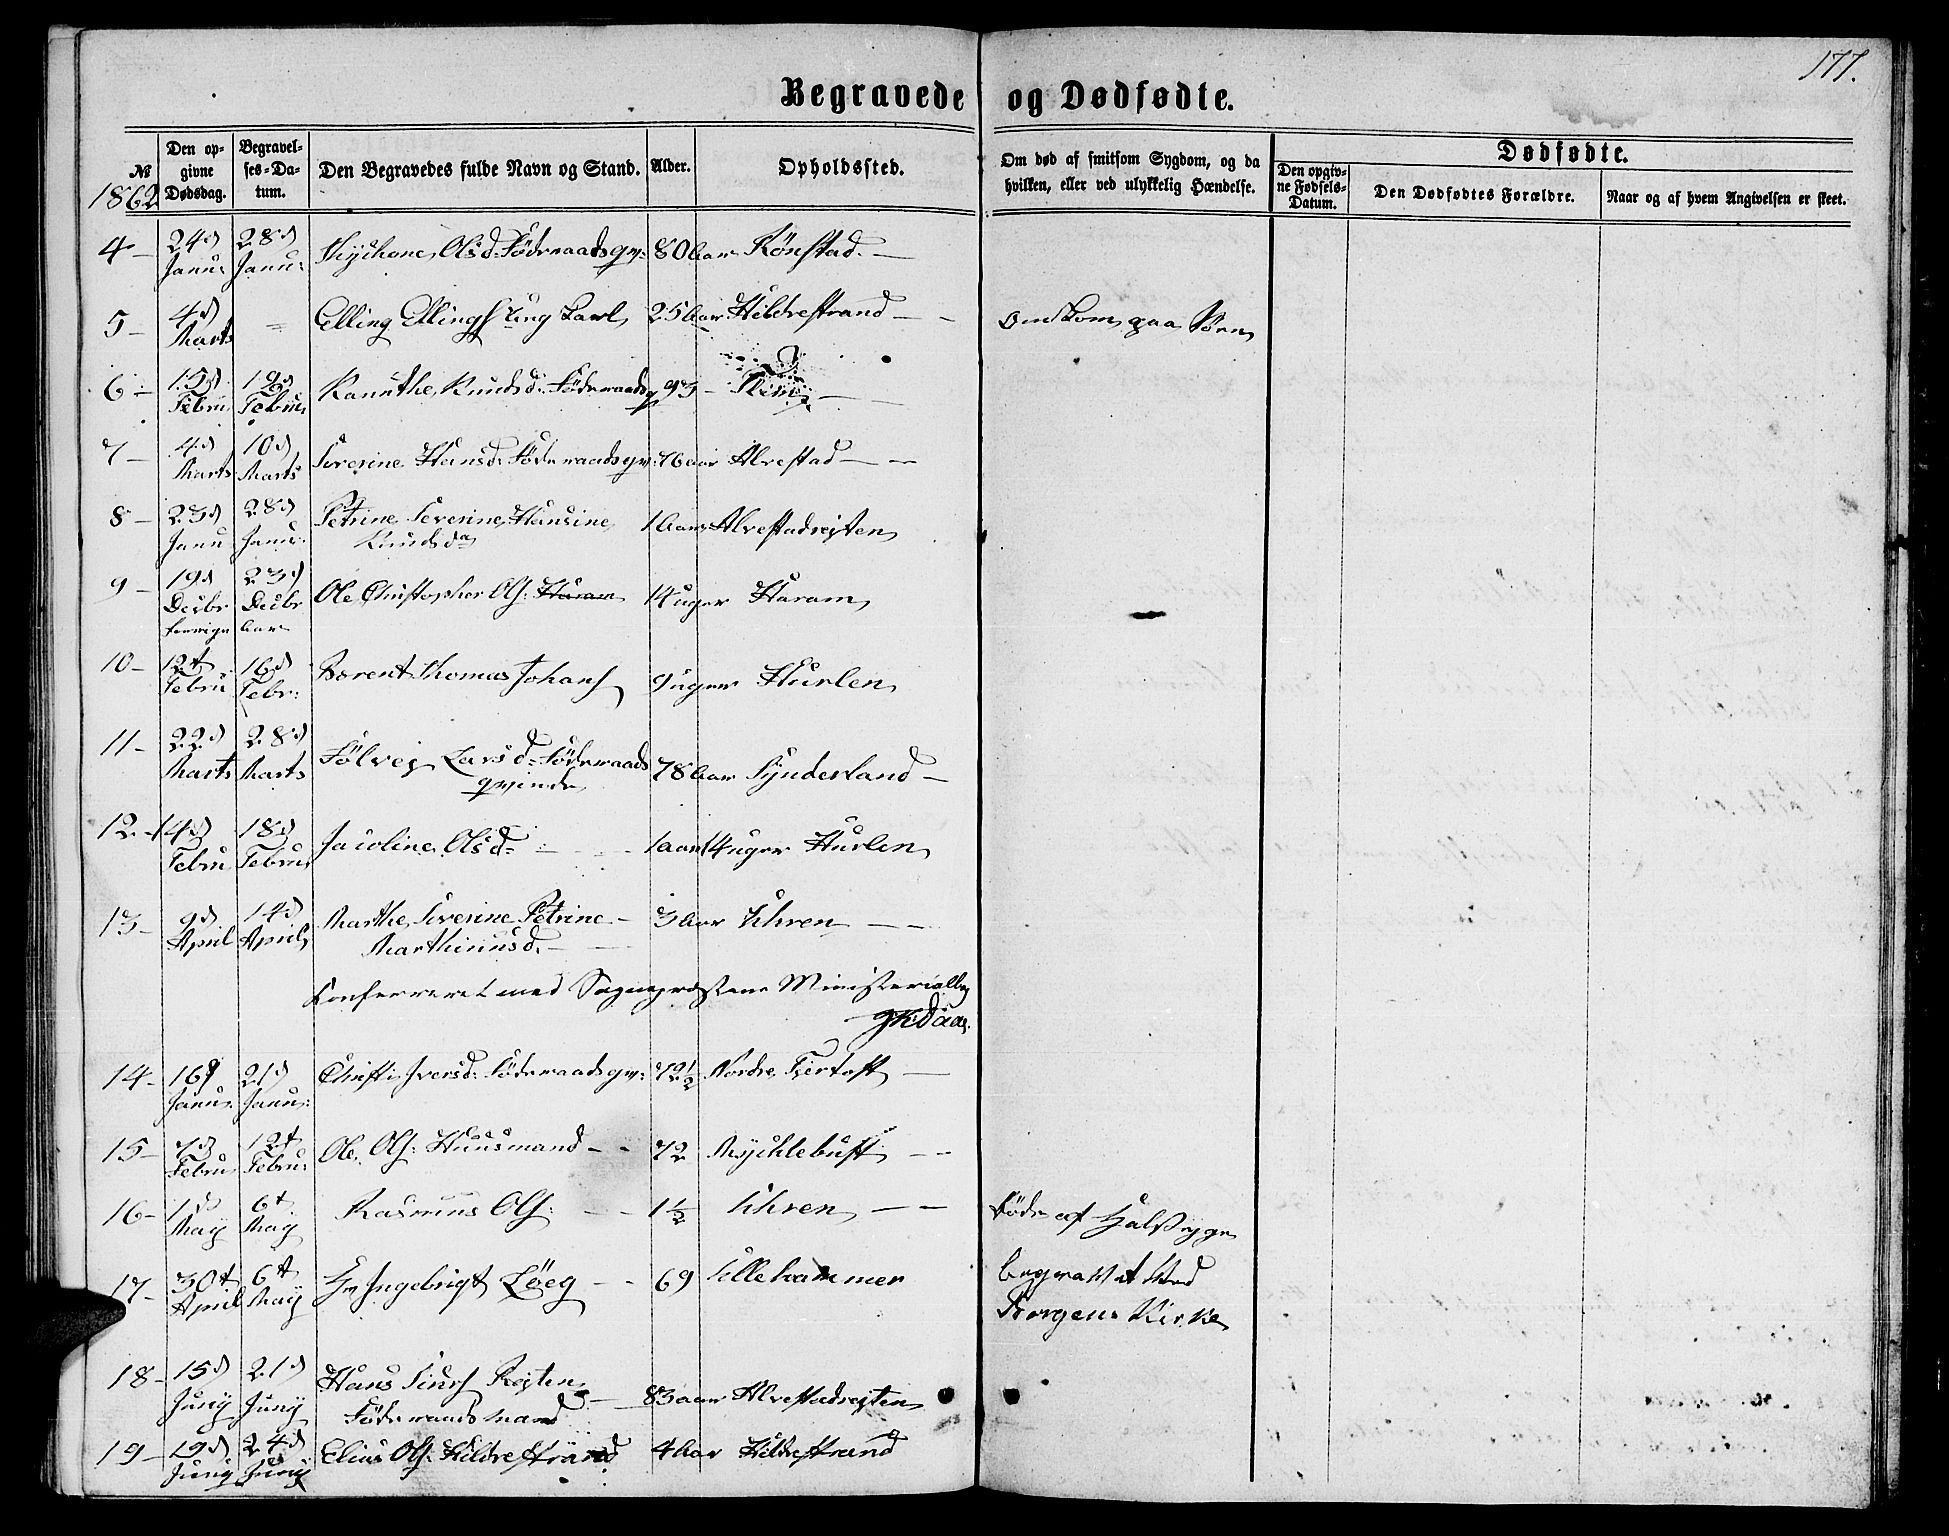 177.
Begravede og Dødfødte.
№
1862
Den op-
givne
Dødsdag.
Begravel-
ses-Da-
tum.
Den Begravedes fulde Navn og Stand.
Alder.
Opholdssted.
Om død af smitsom Sygdom, og da
hvilken, eller ved ulykkelig Hændelse.
Dødfødte.
Den opgiv-
ne Fødsels-
Datum.
Den Dødfødtes Forældre.
Naar og af hvem Angivelsen er skeet.
4 - 24d Janu: 28d Janu: Olsd: Föderaadsqv: 80 aar Rönstad -
5 - 4d Marts = Elling Ellings: ung Karl 25 aar Hildrestrand - - Omkom paa Söen
6 - 15d Febru 19d Febru Knudsd: Föderaadsq 93 - Flem -
7 - 4d Marts 10d Marts Severine Hansd: Föderaadsqv: 76 aar Alvestad - -
8 - 23d Janu 28d Janu: Petrine Severine Hansine
Knudsda 1 aar Alvestadrejten
9 - 19d Decbr 23d Decbr Ole Christopher Ols: Haram 14 uger Haram
forrige Aar
10 - 12t Febru 16d Febr: Berent Thomas Johans 9 uger Hurlen
11 - 22d Marts 28d Marts Sölvej Larsd: Föderaads
qvinde 78 aar Synderland -
12 - 14d Febru 18d Febru Jacoline Olsd: - - 1 aar 14 uger Hurlen
13 - 9d April 14d April Marthe Severine Petrine -
Marthinusd. - 3 aar Uhren - -
Konfereret med Sogneprestens Ministerialbog
14 - 16d Janu: 21d Janu: Christi Iversd: Föderaadsqv: 72½ Nordre Fjertoft -
15 - 7d Febru 12t Febru: Ole Ols: Huusmand - - 72 Myklebust - -
16 - 1d May 6t May Rasmus Ols: - - 1½ Uhren - - Döde af Halssyge
17 - 30t April 6t May Ingebrigt Löeg - - 69 Ullehammer begravet ved
Borgens Kirke
18 - 15d Juny 21d Juny Hans Siurs Rejten
Föderaadsmand - 83 aar Alvestadrejten
19 - 19d Juny 24d Juny Elias Ols: Hildrestrand 4 aar Hildrestrand